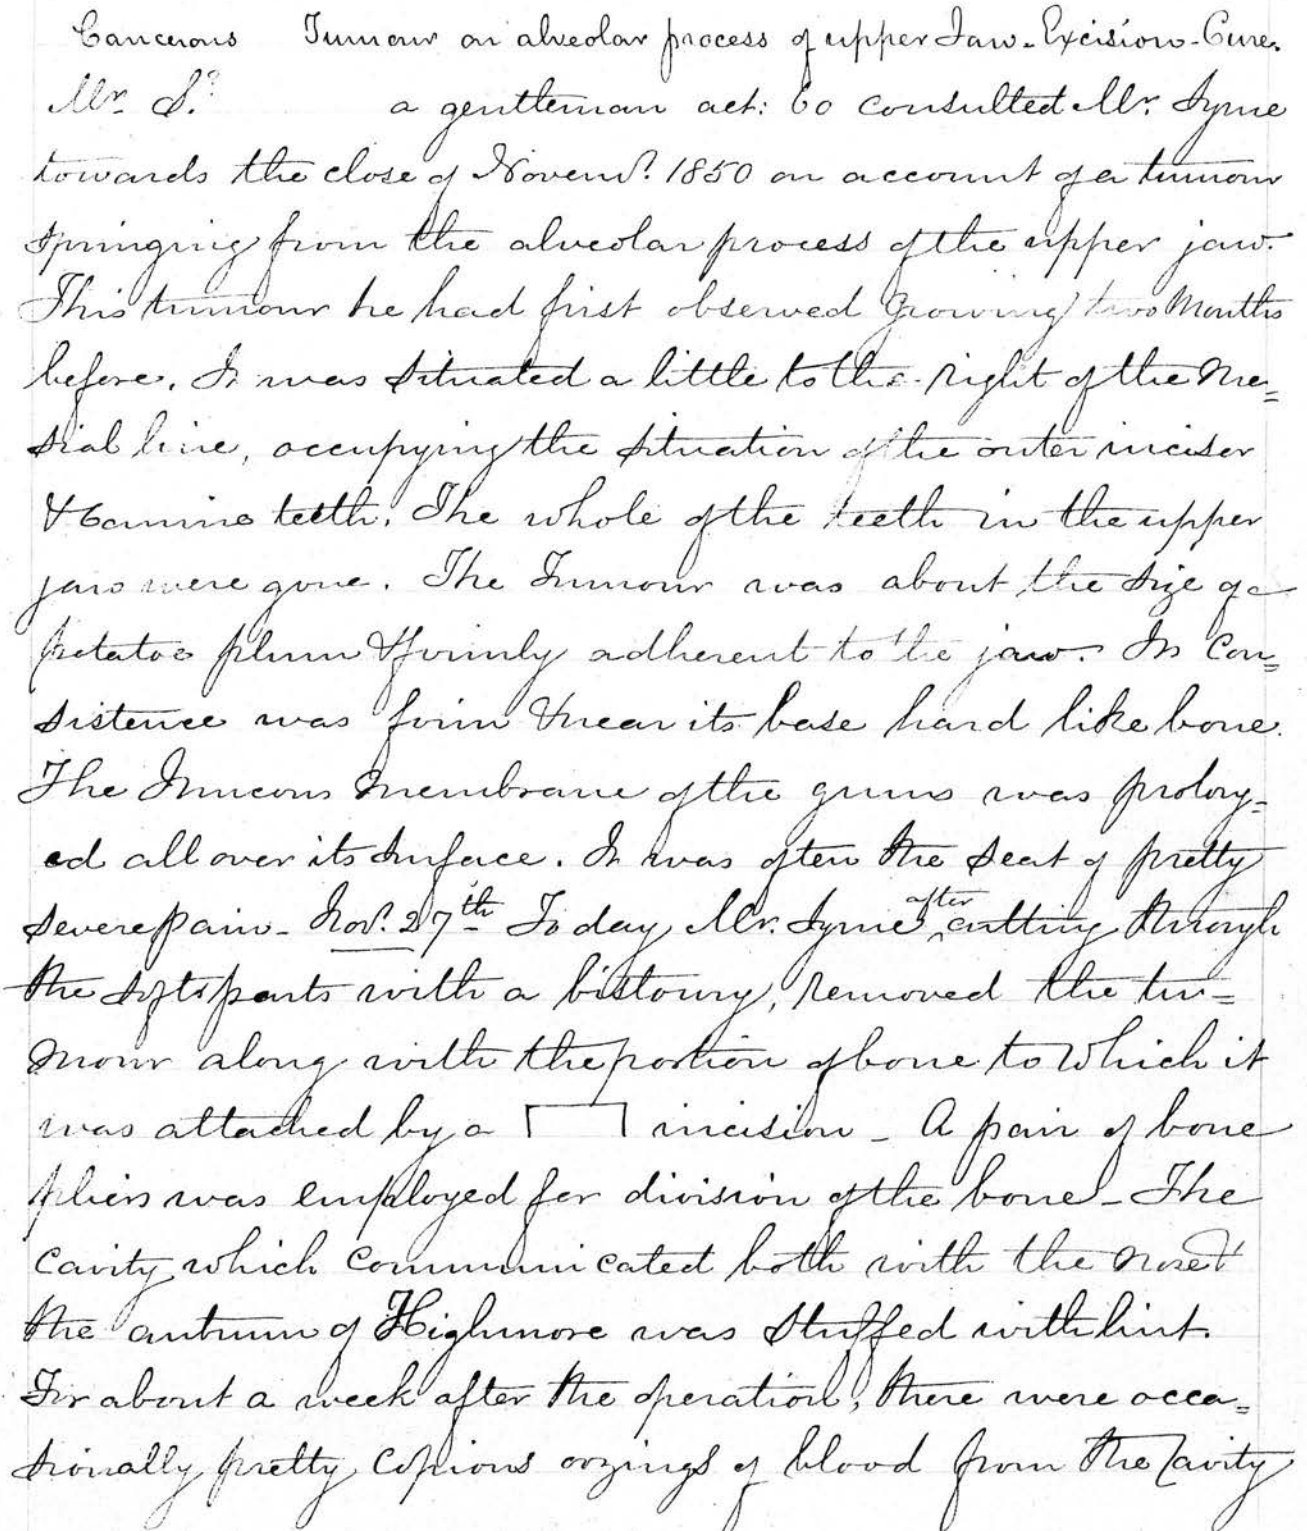 Cancerous Tumour on alveolar process of upper Jaw - Excision - Cure.
Mr. S.? a gentleman aet: 60 consulted Mr. Syme
towards the close of Novemr. 1850 on account of a tumour
springing from the alveolar process of the upper jaw.
This tumour he had first observed growing two Months
before. It was situated a little to the right of the Me=
sial line, occupying the situation of the outer incisor
& Canine teeth. The whole of the teeth in the upper
jaw were gone. The Tumour was about the size of a
potatoe plum & firmly adherent to the jaw. Its Con=
sistence was firm & near its base hard like bone.
The Mucous Membrane of the gums was prolong=
ed all over its surface. It was often the seat of pretty
severe pain - Novr. 27th To day Mr. Syme after cutting through
the soft parts with a bistoury, removed the tu=
mour along with the portion of bone to which it
was attached by a incision - A pair of bone
pliers was employed for division of the bone - The
cavity which communicated both with the nose &
the antrum of Highmore was stuffed with lint.
For about a week after the operation, there were occa=
sionally pretty copious oozings of blood from the Cavity